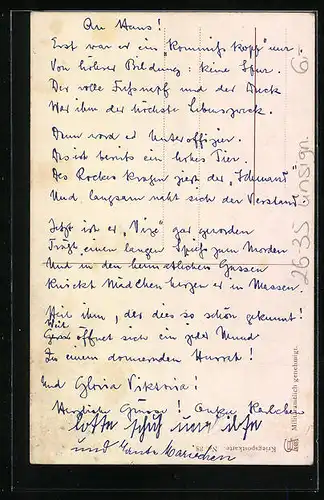 An Hans!
Erst war er ein "Kommißkopf" nur.
Von höhrer Bildung: keine Spur.
Der volle Fußnapf und der Dreck
War ihm der höchste Lebenszweck.
Dann ward er Unteroffizier.
Das ist bereits ein hohes Tier.
Des Rockes Kragen ziert der
Und langsam naht sich der Verstand.
Jetzt ist er "Vize" gar geworden
Trägt einen langen Spieß zum Morden
Und in den heimatlichen Gassen
Knickt Mädchenherzen er in Massen.
Heil ihm, der dies so schön gekonnt!
Weit öffnet sich ein jeder Mund
Zu einem donnernden Hurrah!
Und Gloria Viktoria!
Herzlich Grüsse! Onkel Karlchen
Lotte
und Tante Mariechen
2635 unsign.
6,-
Kriegspostkarte. No.
Militäramtlich genehmigt.